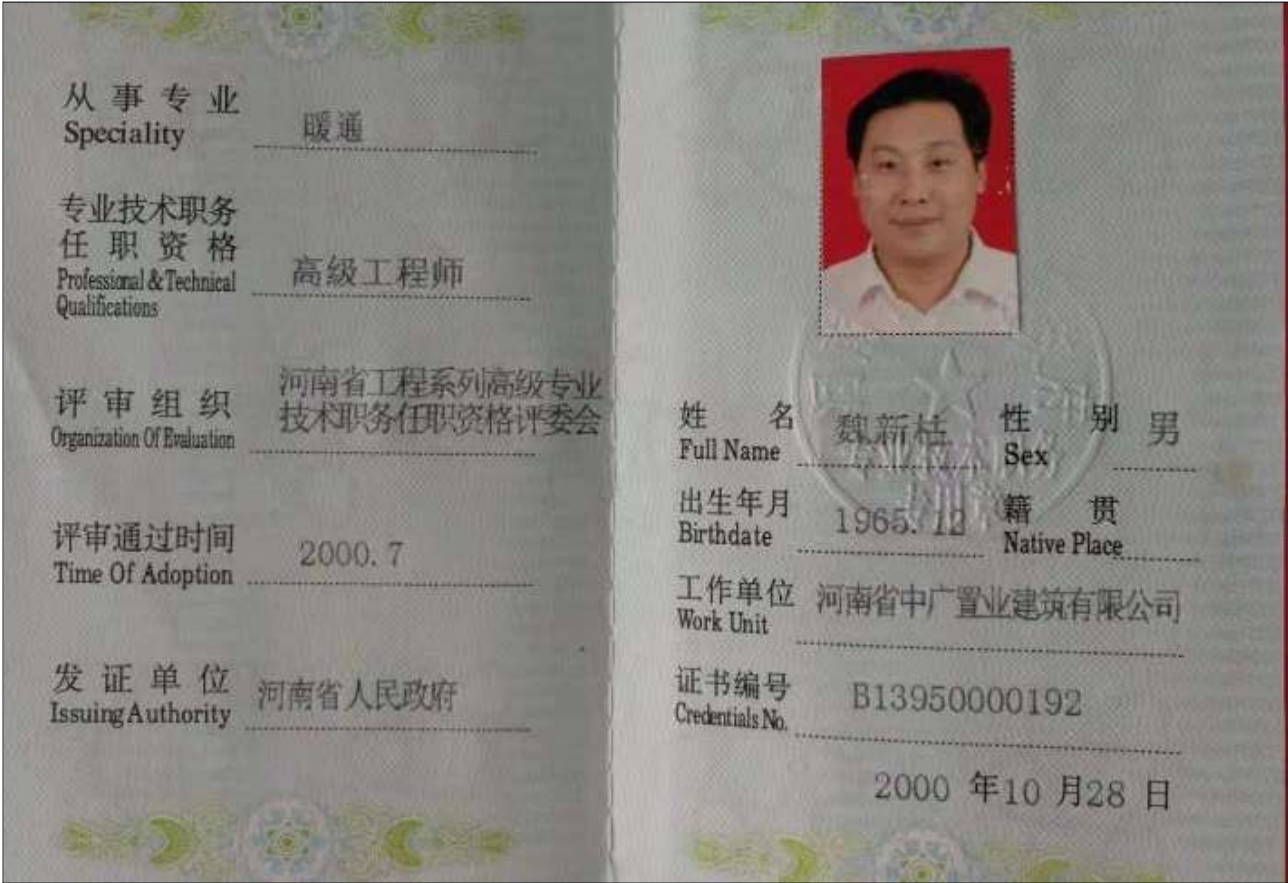 从事专业
Speciality
暖通
专业技术职务
任职资格
Professional & Technical
Qualifications
高级工程师
评审组织
Organization Of Evaluation
河南省工程系列高级专业
技术职务任职资格评委会
评审通过时间
Time Of Adoption
2000.7
发证单位
Issuing Authority
河南省人民政府
姓名
Full Name
魏新柱
性别
Sex
男
出生年月
Birthdate
1965.12
籍贯
Native Place
工作单位
Work Unit
河南省中广置业建筑有限公司
证书编号
Credentials No.
B13950000192
2000 年10 月28 日